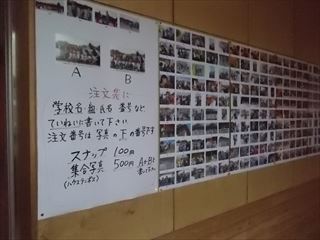 A
B
注文袋に
学校名・組・氏名・番号など
ていねいに書いて下さい
注文番号は写真の下の番号です
スナップ 100円
集合写真 500円
(ハウステンボス)
A+B